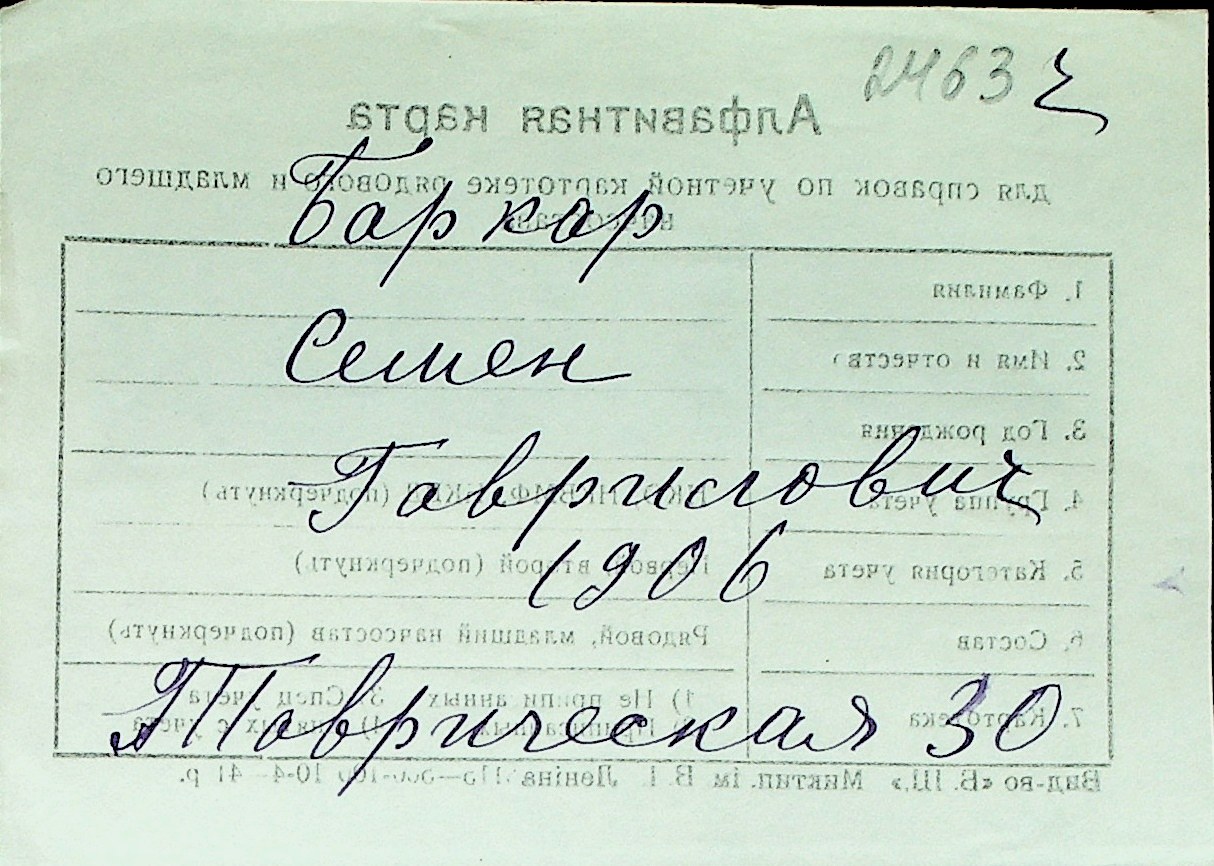 2463
Алфавитная карта
для справок по учетной картотеке рядового и младшего
начсостава
Баркар
1. Фамилия
Семен
2. Имя и отчество
3. Год рождения
Гаврилович
4. Группа учета (подчеркнуть)
1906
5. Категория учета Первой, второй (подчеркнуть)
6. Состав Рядовой, младший начсостав (подчеркнуть)
7. Картотека 1) Не приписанных 3) Спец учета
Таврическая 30
Вид-во «Б. Ш.» Миктип. ім. В. І. Леніна 10-4— 41 р.